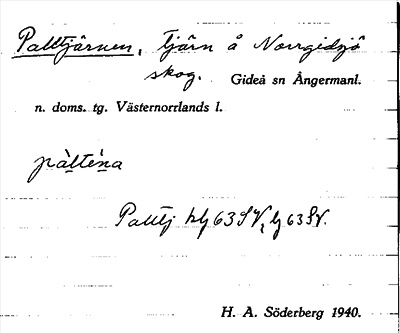 Palltjärnen, tjärn å Norrgidsjö
skog. Gideå sn Ångermanl.
n. doms. tg. Västernorrlands l.
pàlté̀na
Palltj hlj 63 SV, lj 63 SV.
H. A. Söderberg 1940.